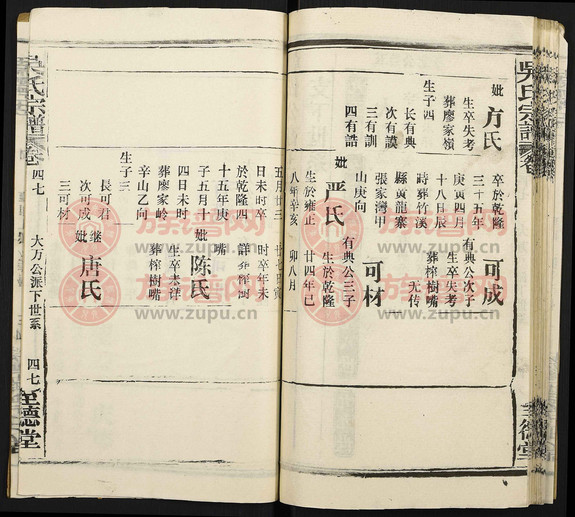 吳氏宗譜
卷
妣方氏
生卒失考
葬廖家嶺
生子四
長有典
次有謨
三有訓
四有誥
卒於乾隆
三十五年
庚寅四月
十八日辰
時葬竹溪
縣黃龍寨
張家灣甲
山庚向
妣严氏
生於雍正
八年辛亥
可成
有典公次子
生卒失考
葬榨樹嘴
无传
可材
有典公三子
生於乾隆
廿四年己
卯八月
五月廿三
日未时卒
於乾隆四
十五年庚
子五月十
四日未时
葬廖家岭
辛山乙向
生子三
長可君
次可成
三可材
时卒年未
詳葬榨樹
嘴
妣陈氏
生卒未详
葬榨樹嘴
继妣唐氏
吳氏宗譜
卷
四七
大万公派下世系
四七
至德堂
至德堂
族谱网
www.zupu.cn